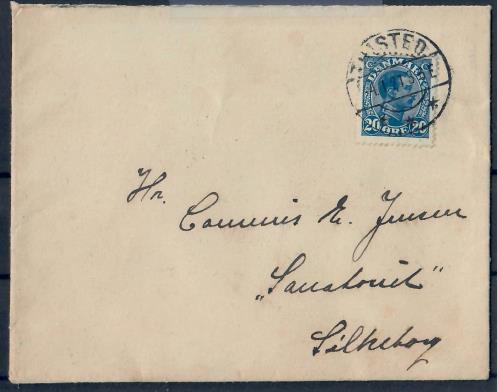 THISTED
DENMARK
20 ØRE 20
Hr.
Commis E. Jensen
„Sanatoriet”
Silkeborg